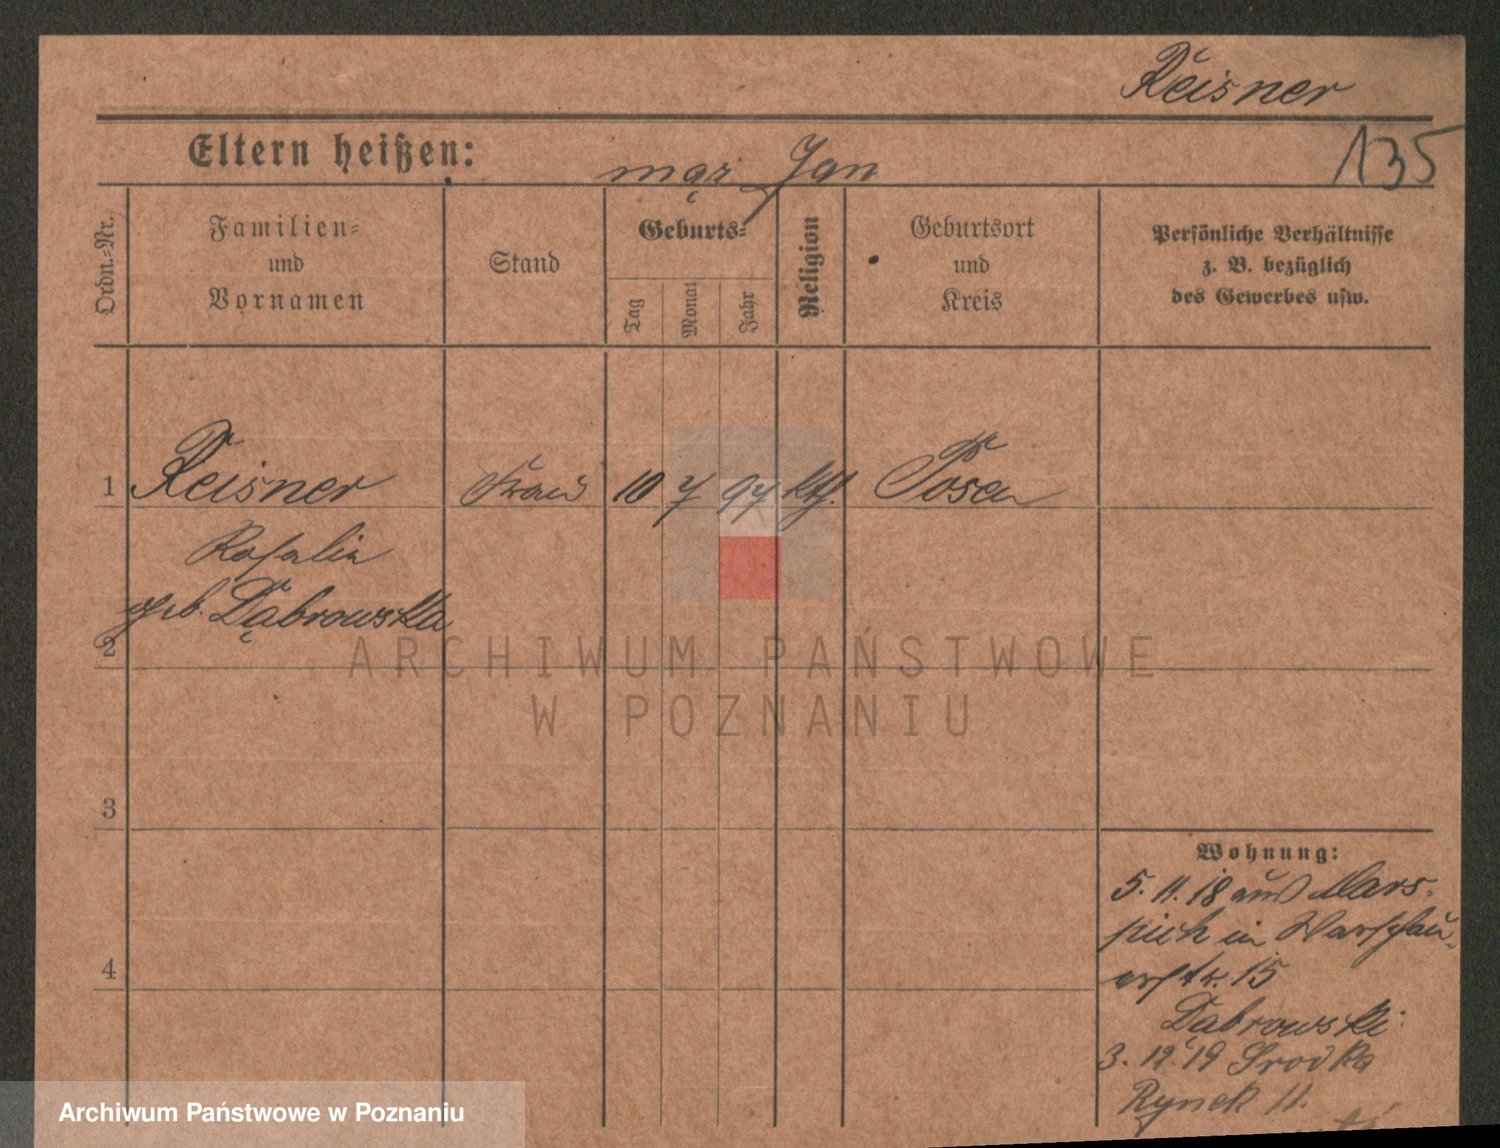 Reisner
135
Eltern heißen:
mąż Jan
Ordn.-Nr.
Familien-
und
Vornamen
Stand
Geburts-
Tag
Monat
Jahr
Religion
Geburtsort
und
Kreis
Persönliche Verhältnisse
z. B. bezüglich
des Gewerbes usw.
1 Reisner Frau 10 7 97 kth. Posen
Rosalie
geb. Dąbrowska
2
ARCHIWUM PAŃSTWOWE
W POZNANIU
3
4
Wohnung:
5. 11. 18 aus
in Warschau-
erstr. 15
Dąbrowski
3. 12. 19 Srodka
Rynek 11.
Archiwum Państwowe w Poznaniu